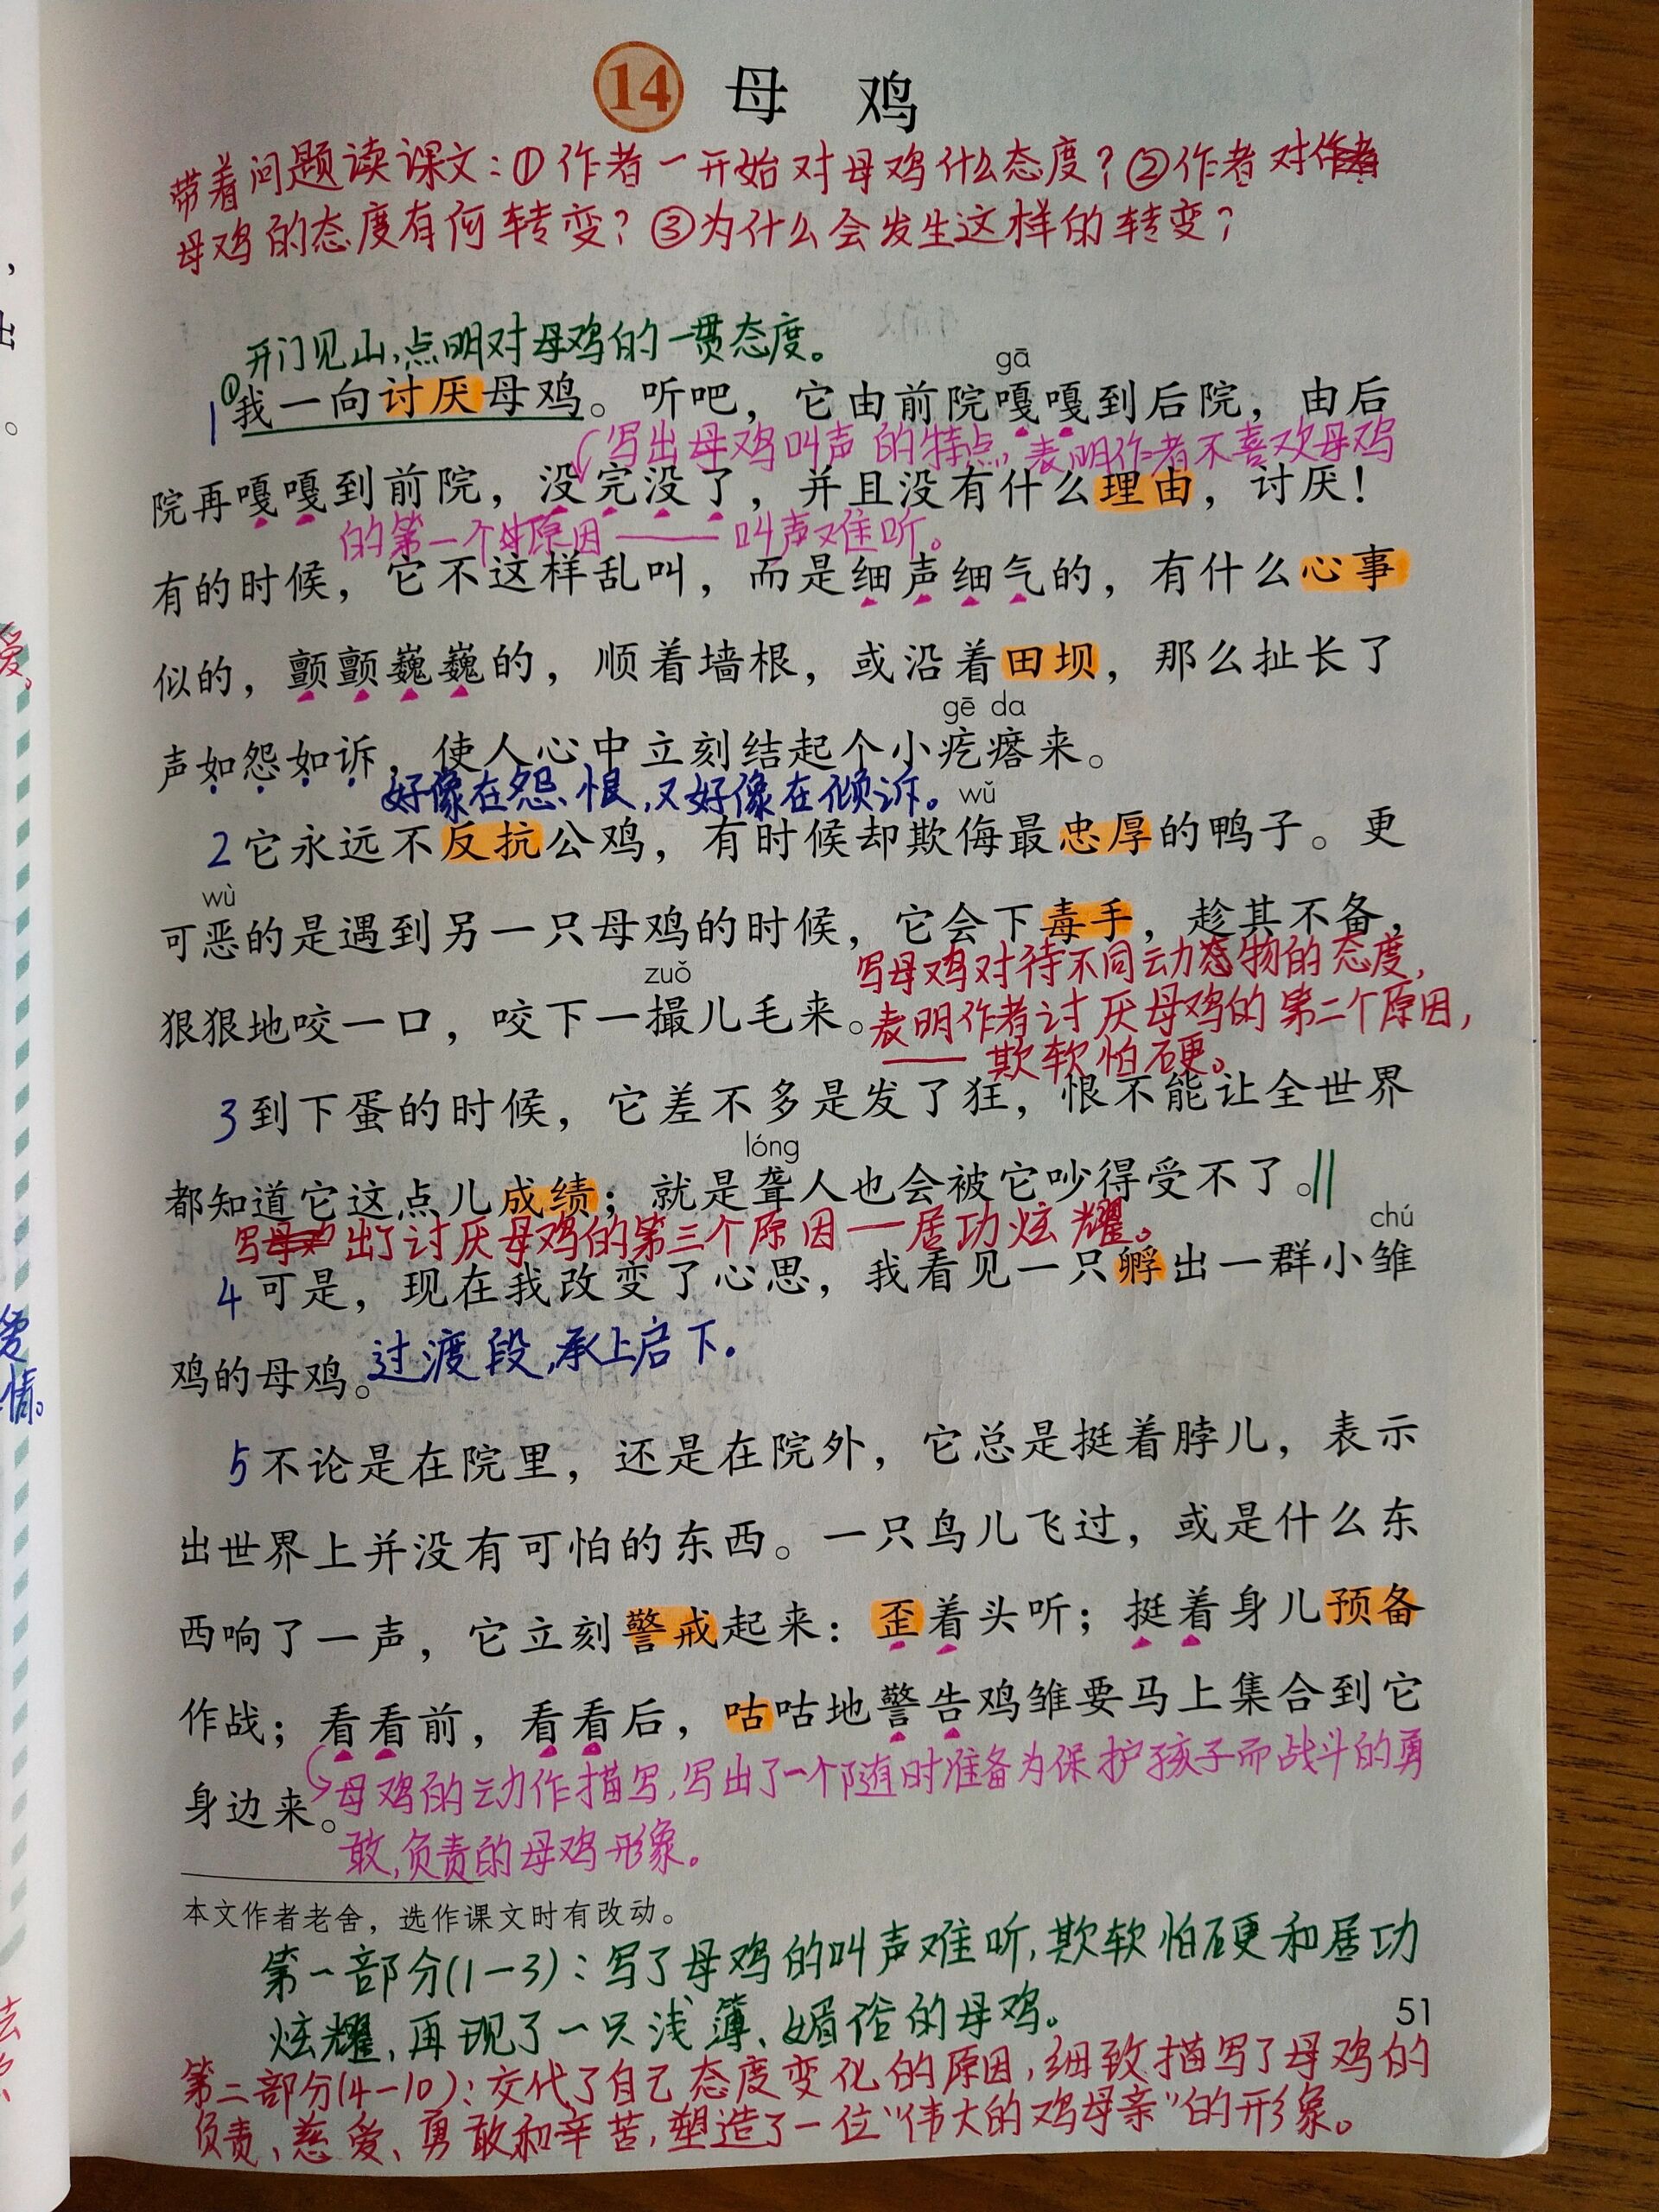 14 母 鸡
带着问题读课文:①作者一开始对母鸡什么态度?②作者对
母鸡的态度有何转变?③为什么会发生这样的转变?
开门见山,点明对母鸡的一贯态度。
gā
1 ①我一向讨厌母鸡。听吧,它由前院嘎嘎到后院,由后
写出母鸡叫声的特点,表明作者不喜欢母鸡
院再嘎嘎到前院,没完没了,并且没有什么理由,讨厌!
的第一个原因——叫声难听。
有的时候,它不这样乱叫,而是细声细气的,有什么心事
似的,颤颤巍巍的,顺着墙根,或沿着田坝,那么扯长了
gē da
声如怨如诉,使人心中立刻结起个小疙瘩来。
好像在怨恨,又好像在倾诉。
wǔ
2 它永远不反抗公鸡,有时候却欺侮最忠厚的鸭子。更
wù
可恶的是遇到另一只母鸡的时候,它会下毒手,趁其不备,
写母鸡对待不同动物的态度,
zuǒ
狠狠地咬一口,咬下一撮儿毛来。
表明作者讨厌母鸡的第二个原因,
——欺软怕硬。
3 到下蛋的时候,它差不多是发了狂,恨不能让全世界
lóng
都知道它这点儿成绩;就是聋人也会被它吵得受不了。‖
写出了讨厌母鸡的第三个原因—居功炫耀。
chú
4 可是,现在我改变了心思,我看见一只孵出一群小雏
鸡的母鸡。
过渡段,承上启下。
5 不论是在院里,还是在院外,它总是挺着脖儿,表示
出世界上并没有可怕的东西。一只鸟儿飞过,或是什么东
西响了一声,它立刻警戒起来:歪着头听;挺着身儿预备
作战;看看前,看看后,咕咕地警告鸡雏要马上集合到它
身边来。
母鸡的动作描写,写出了一个随时准备为保护孩子而战斗的勇
敢,负责的母鸡形象。
本文作者老舍,选作课文时有改动。
第一部分(1—3):写了母鸡的叫声难听,欺软怕硬和居功
炫耀,再现了一只浅薄、媚俗的母鸡。
51
第二部分(4—10):交代了自己态度变化的原因,细致描写了母鸡的
负责、慈爱、勇敢和辛苦,塑造了一位“伟大的鸡母亲”的形象。